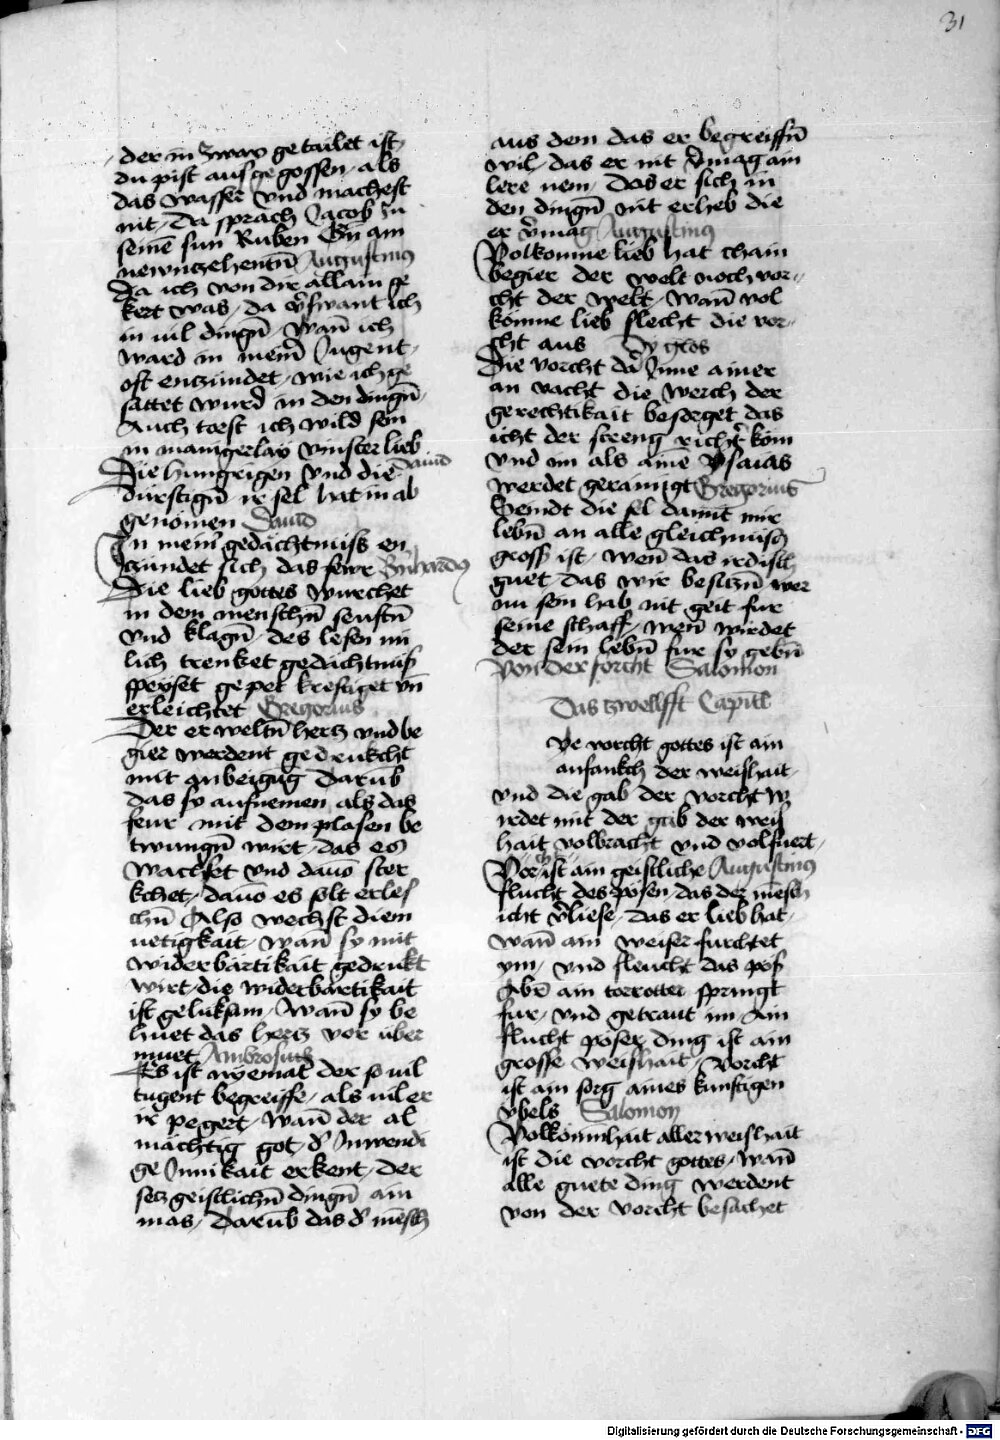 31
der in zway getailet ist
du pist aus gegossen als
das wasser und machest
nit, da sprach Jacob zu
seinē sun Ruben Gn̄ am
newntzehentn̄ Augustinus
Da ich von dir allain ge
kert was, da v̄swant ich
in vil dingn̄, wan̄ ich
ward in meinr̄ Jugent,
oft entzündet, wie ich ge
sattet wurd in den dingn̄,
Auch torst ich wild sein
in manigerlay vinster lieb
Die hungrigen und die Dauid
dürstign̄ ir sel hat in ab
genomen Dauid
In meinr̄ gedächtnüss en
zündet sich das fewr Bn̄hardo
Die lieb gottes würchet
in dem menschn̄ seuftn̄
und klagn̄, des lesen in
lich trenket gedächtnüß
speyset gepet kreftiget vn̄
erleichtet Gregorius
Der erweltn̄ hertz und be
gier werdent gedrukcht
mit
das sy aufnemen als das
feur mit dem plasen be
twungn̄ wirt, das es
wachset und dauō ster
kchet, dauō es solt erles
chn̄ Also wechst diem
uetigkait wan̄ sy mit
widerbärtikait gedrukt
wirt, die widerbärtikait
ist geluksam, wan̄ sy be
huet das hertz vor über
muet Ambrosius
Es ist nyemat der so vil
tugent begreiffe, als vil er
ir pegert, wan̄ der al
mächtig got, d' Inwendi
ge Innikait erkent, der
setz geistlichn̄ dingn̄ ain
mas, Darūb das d' mēsch
aus dem das er begreiffn̄
wil, das er nit v̄mag ain
lere nem, Das er sich in
den dingn̄ nit erheb die
er v̄mag Augustinus
Volkomne lieb hat chain
begier der welt noch vor-
cht der welt, wan̄ vol
komne lieb slecht die vor-
cht aus Dy glos
Die vorcht da Inne ainer
an vacht die werch der
gerechtikait besorget das
icht der streng richtr̄ köm
und im als ainē Ysaias
werdet gerainigt Gregorius
Seindt die sel damit wir
lebn̄ an alle gleichnüss
gross ist, wen̄ das irdisch
guet das wir besitzn̄ wer
nu sein hab nit geit fur
seine schaff, wen̄ wirdet
der sein lebn̄ fur sy gebn̄
Von der forcht Salomon
Das zwelfft Capittl
ye vorcht gottes ist ain
anfankch der weishait,
und die gab der vorcht w
irdet mit der gab der weis
hait volbracht und volfuert,
Vorcht ist ain geistliche Augustinus
flucht des pösen, das der mēsch
icht v̄liese, das er lieb hat,
wan̄ ain weiser furchtet
ym, und fleucht das pöß
Abr̄ ain torrotter springt
fur, und getraut im, Ain
flucht pöser ding ist ain
grosse weishait, Vorcht
ist ain sorg aines kunftigen
vbels Salomon
Volkömnhait aller weishait
ist die vorcht gottes, wan̄
alle guete ding werdent
von der vorcht besachet
Digitalisierung gefördert durch die Deutsche Forschungsgemeinschaft - DFG